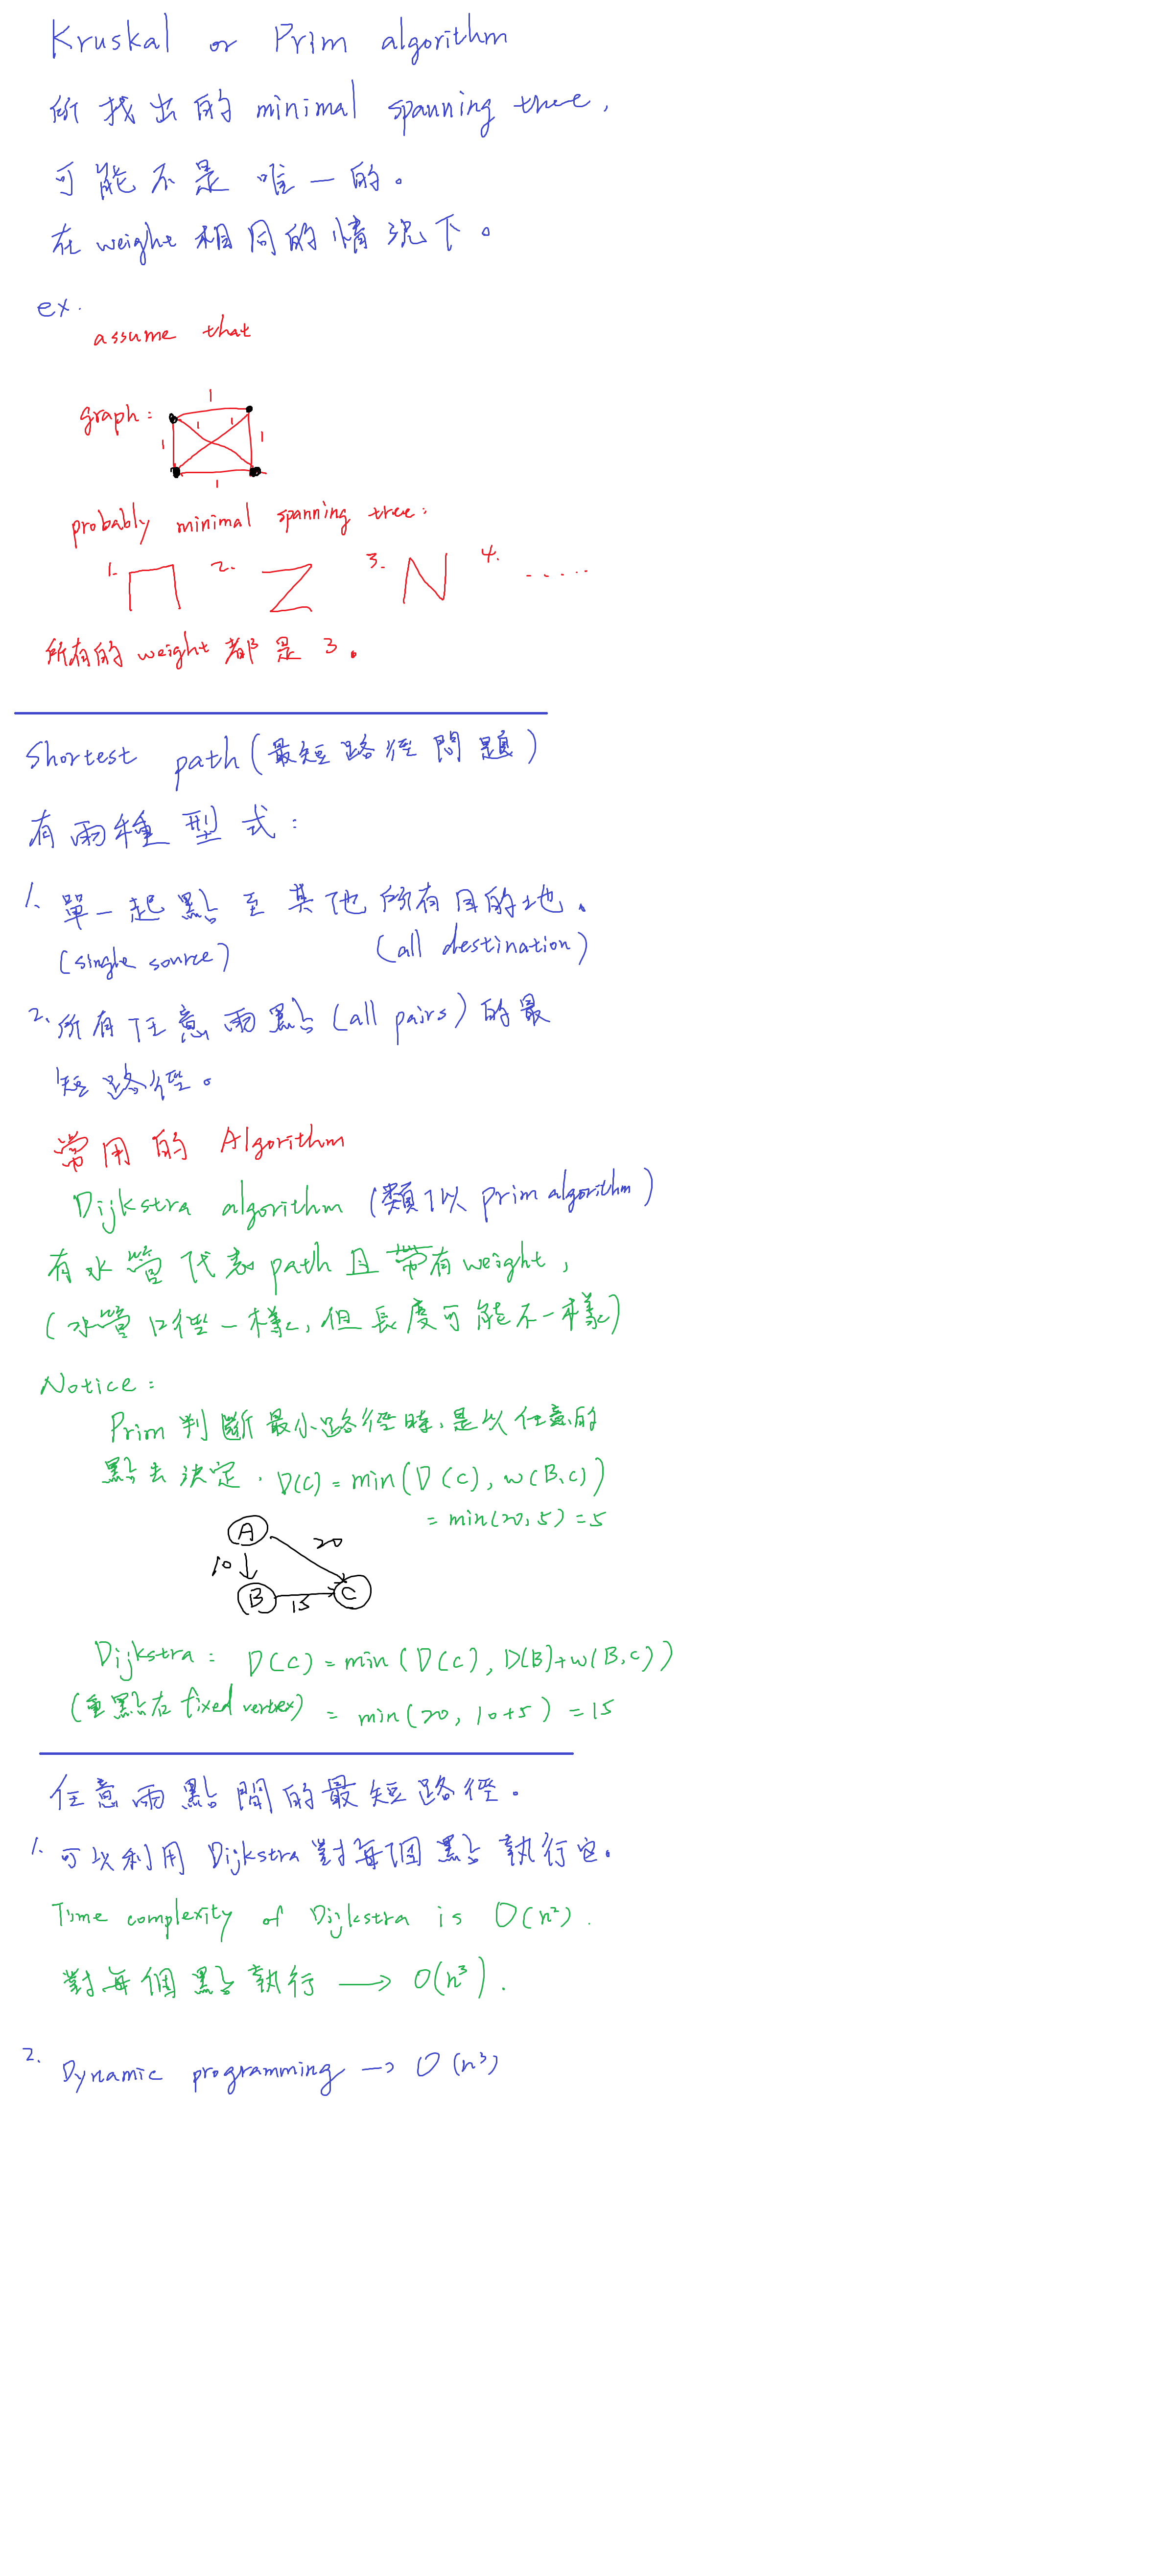 Kruskal or Prim algorithm
所找出的 minimal spanning tree,
可能不是唯一的。
在 weight 相同的情況下。
ex.
assume that
graph:
1
1 1
1 1
1
probably minimal spanning tree:
1. 2. 3. 4. .....
所有的 weight 都是 3。
Shortest path(最短路徑問題)
有兩種型式:
1. 單一起點至其他所有目的地。
(single source) (all destination)
2. 所有任意兩點(all pairs)的最
短路徑。
常用的 Algorithm
Dijkstra algorithm (類似 prim algorithm)
有水管代表 path 且帶有 weight,
(水管口徑一樣, 但長度可能不一樣)
Notice:
Prim 判斷最小路徑時, 是以任意的
點去決定. D(C) = min(D(C), w(B,C))
= min(20, 5) = 5
A
20
10
B
15
C
Dijkstra: D(C) = min(D(C), D(B)+w(B,C))
(重點在 fixed vertex) = min(20, 10+5) = 15
任意兩點間的最短路徑.
1. 可以利用 Dijkstra 對每個點執行它.
Time complexity of Dijkstra is O(n²).
對每個點執行 → O(n³).
2. Dynamic programming → O(n³)